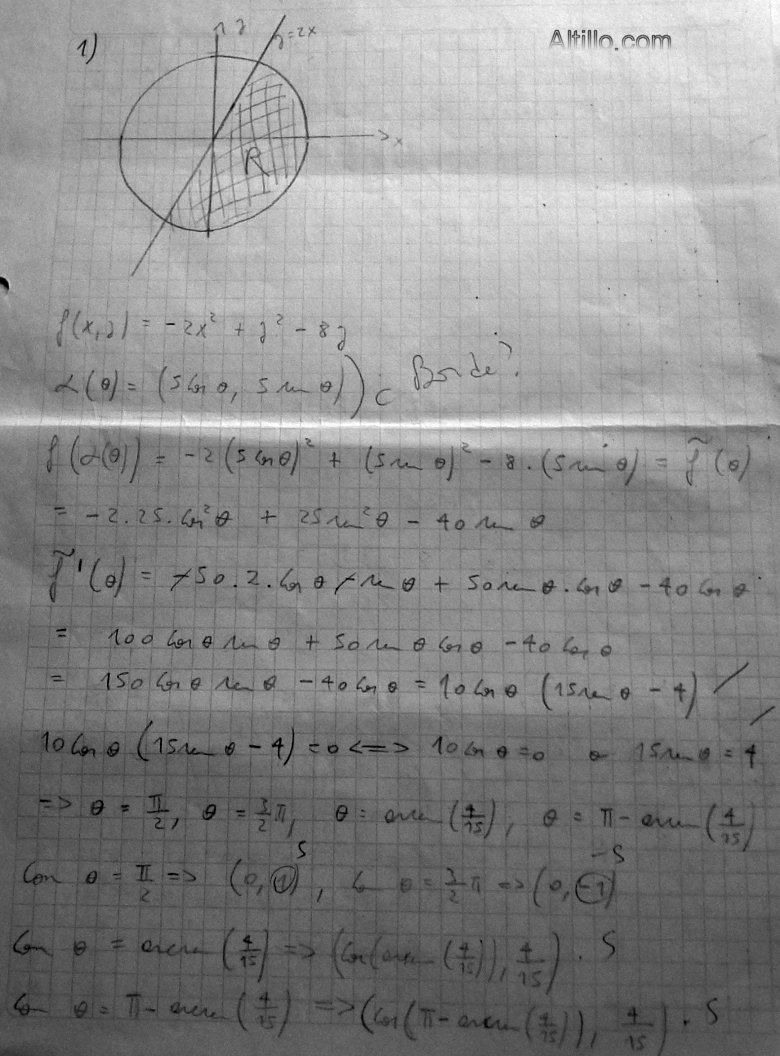 Altillo.com
1)
y
y=2x
x
R
f(x,y) = -2x² + y² - 8y
α(θ) = (5 cos θ, 5 sen θ) ) C Borde?
f(α(θ)) = -2(5 cos θ)² + (5 sen θ)² - 8 . (5 sen θ) = f̃(θ)
= -2.25.cos²θ + 25 sen²θ - 40 sen θ
f̃'(θ) = -50.2.cos θ - sen θ + 50 sen θ . cos θ - 40 cos θ
= 100 cos θ sen θ + 50 sen θ cos θ - 40 cos θ
= 150 cos θ sen θ - 40 cos θ = 10 cos θ (15 sen θ - 4)
10 cos θ (15 sen θ - 4) = 0 <=> 10 cos θ = 0 o 15 sen θ = 4
=> θ = π/2, θ = 3/2 π, θ = arcsen (4/15), θ = π - arcsen (4/15)
Con θ = π/2 => (0, 1) 5, Con θ = 3/2 π => (0, -1) -5
Con θ = arcsen (4/15) => (cos(arcsen (4/15)), 4/15) . 5
Con θ = π - arcsen (4/15) => (cos(π - arcsen (4/15)), 4/15) . 5